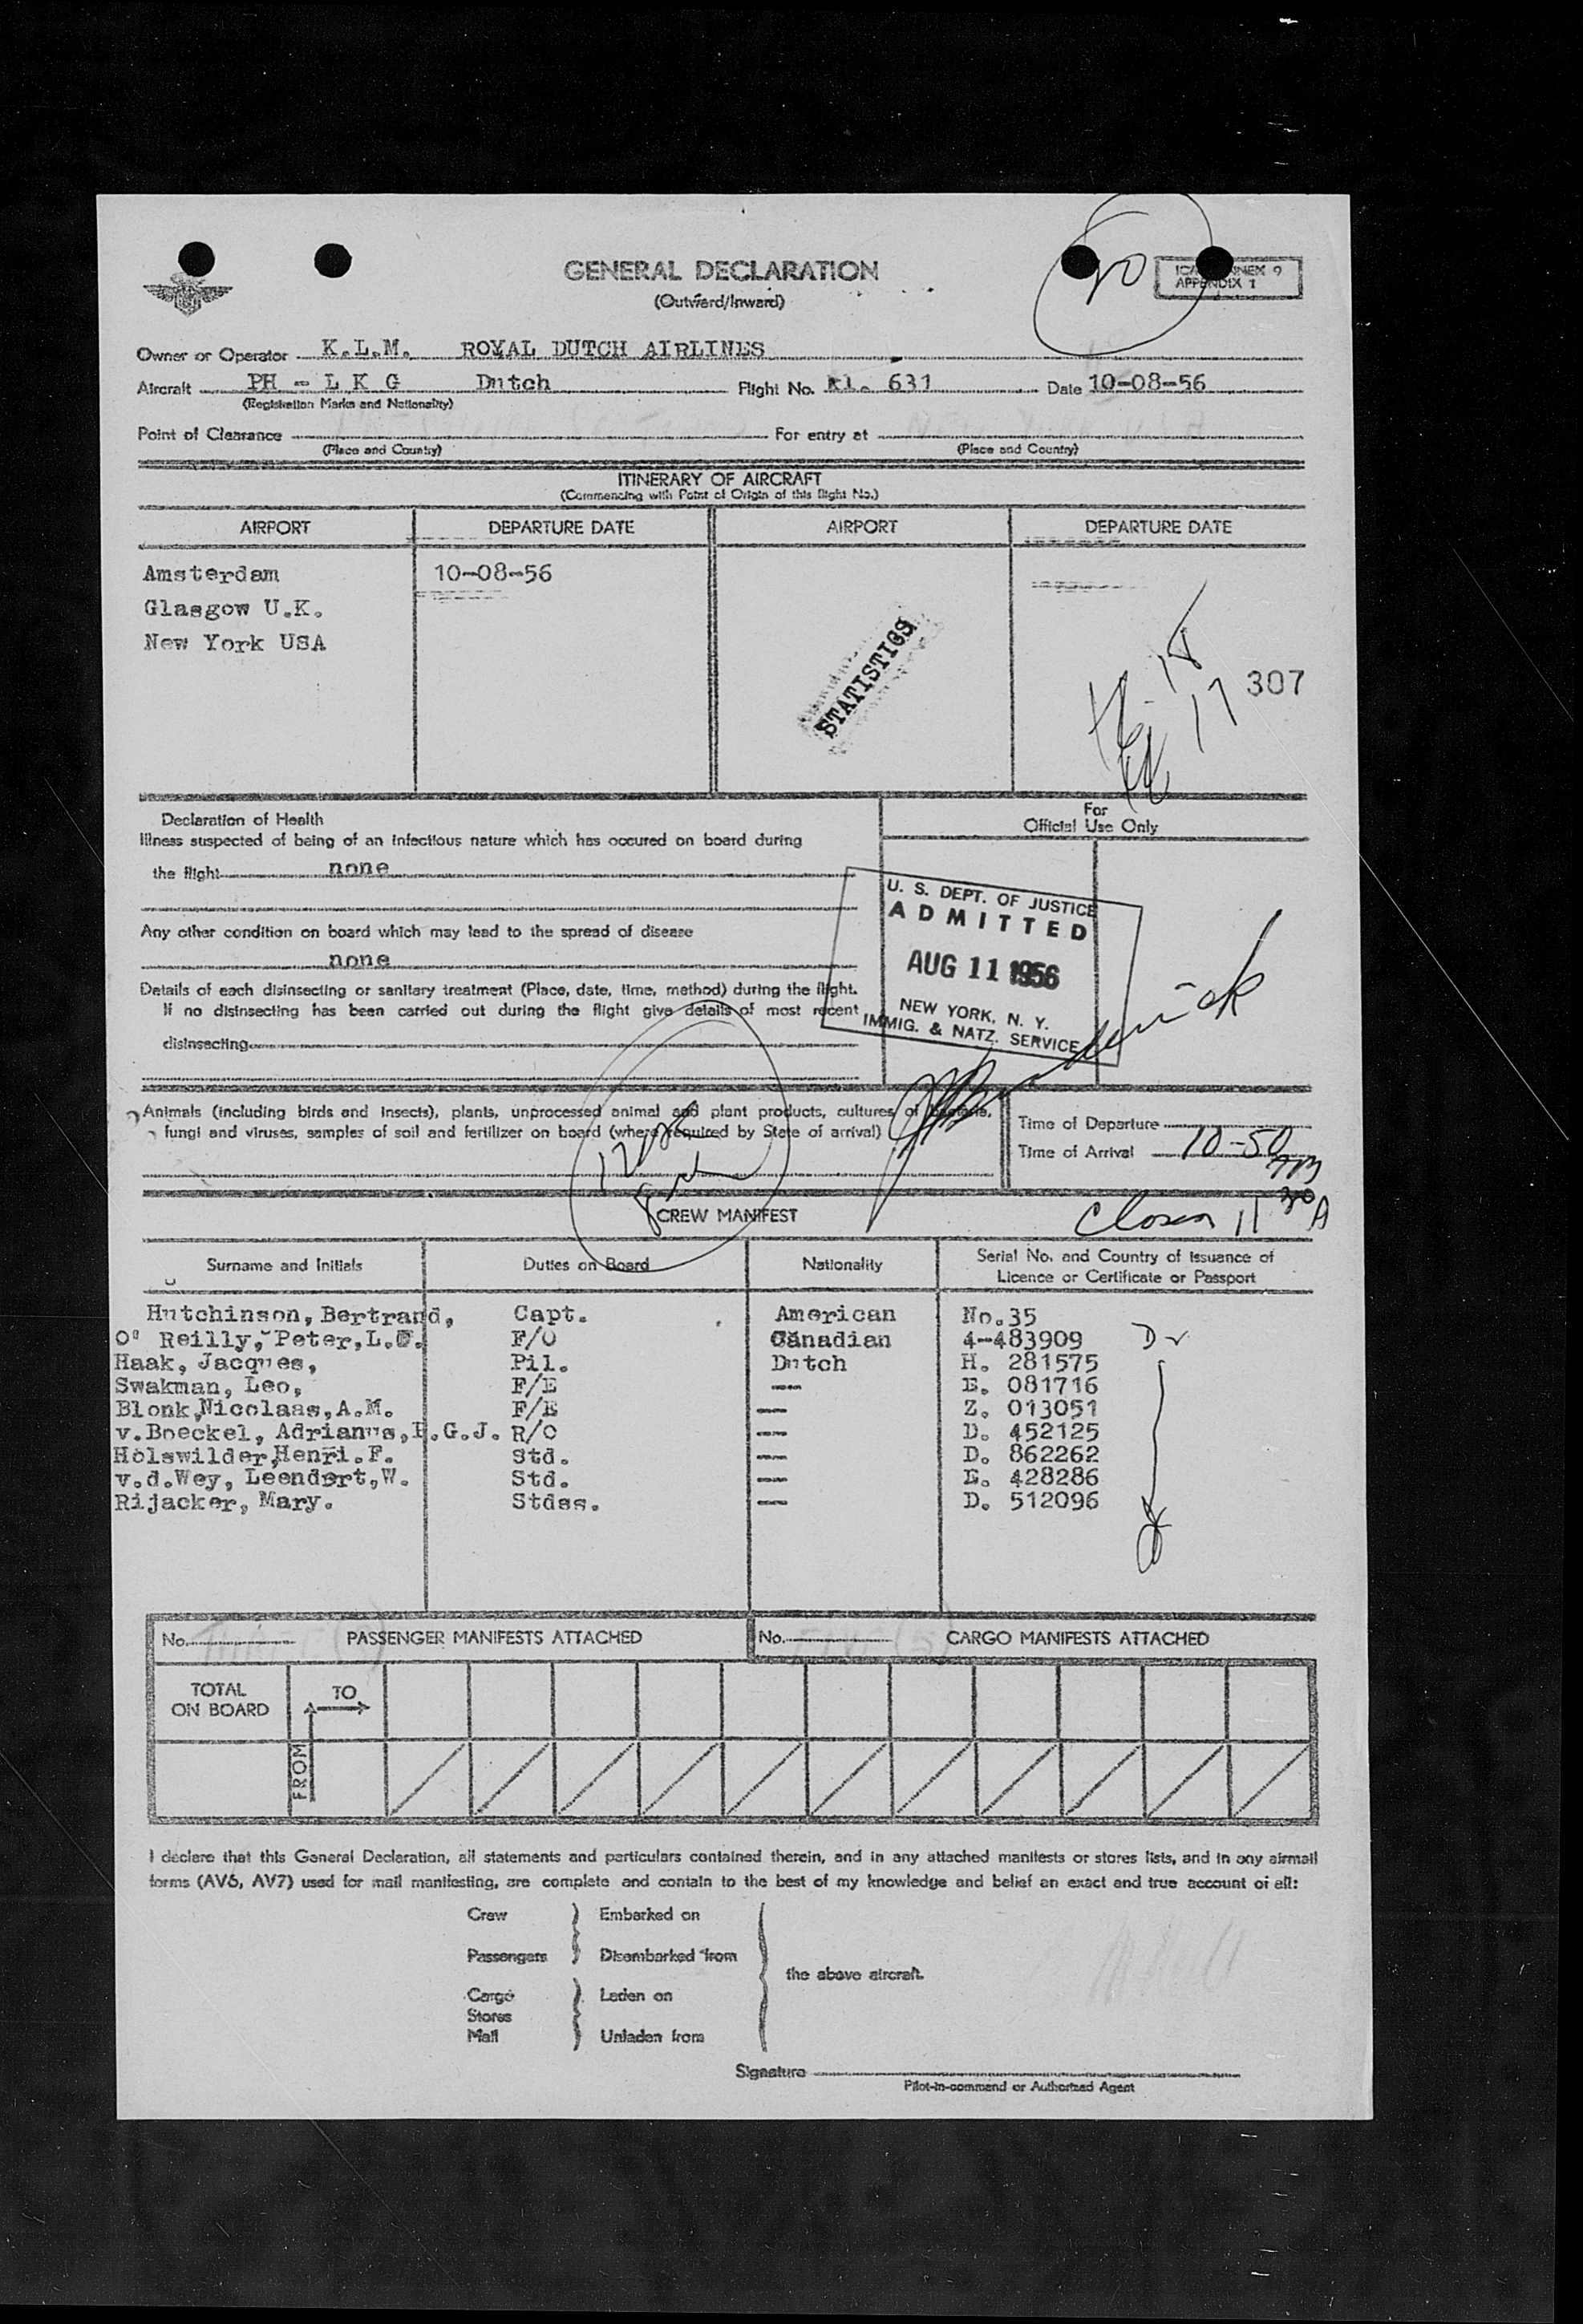 GENERAL DECLARATION
(Outward/Inward)
90
ICAO ANNEX 9
APPENDIX 1
Owner or Operator K.L.M. ROYAL DUTCH AIRLINES
Aircraft PH - L K G Dutch Flight No. Kl. 631 Date 10-08-56
(Registration Marks and Nationality)
Point of Clearance For entry at
(Place and Country) (Place and Country)
ITINERARY OF AIRCRAFT
(Commencing with Point of Origin of this flight No.)
AIRPORT DEPARTURE DATE AIRPORT DEPARTURE DATE
Amsterdam 10-08-56
Glasgow U.K.
New York USA
STATISTICS
18
17
307
Declaration of Health
Illness suspected of being of an infectious nature which has occured on board during
the flight none
Any other condition on board which may lead to the spread of disease
none
Details of each disinsecting or sanitary treatment (Place, date, time, method) during the flight.
If no disinsecting has been carried out during the flight give details of most recent
disinsecting
For
Official Use Only
U. S. DEPT. OF JUSTICE
ADMITTED
AUG 11 1956
NEW YORK, N. Y.
IMMIG. & NATZ. SERVICE
Animals (including birds and insects), plants, unprocessed animal and plant products, cultures of bacteria,
fungi and viruses, samples of soil and fertilizer on board (where required by State of arrival)
Time of Departure
Time of Arrival 10-50
Closed 11 30 A
CREW MANIFEST
Surname and Initials Duties on Board Nationality Serial No. and Country of Issuance of
Licence or Certificate or Passport
Hutchinson, Bertrand, Capt. American No.35
O' Reilly, Peter, L. F/O Canadian 4-483909
Haak, Jacques, Pil. Dutch H. 281575
Swakman, Leo, F/E --- E. 081716
Blonk, Nicolaas, A.M. F/E --- Z. 013051
v.Boeckel, Adrianus, H.G.J. R/O --- D. 452125
Holswilder, Henri. F. Std. --- D. 862262
v.d.Wey, Leendert, W. Std. --- E. 428286
Rijacker, Mary. Stdss. --- D. 512096
No. PASSENGER MANIFESTS ATTACHED No. CARGO MANIFESTS ATTACHED
TOTAL
ON BOARD
TO
FROM
I declare that this General Declaration, all statements and particulars contained therein, and in any attached manifests or stores lists, and in any airmail
forms (AV6, AV7) used for mail manifesting, are complete and contain to the best of my knowledge and belief an exact and true account of all:
Crew Embarked on
Passengers Disembarked from
the above aircraft.
Cargo Laden on
Stores
Mail Unladen from
Signature
Pilot-in-command or Authorized Agent